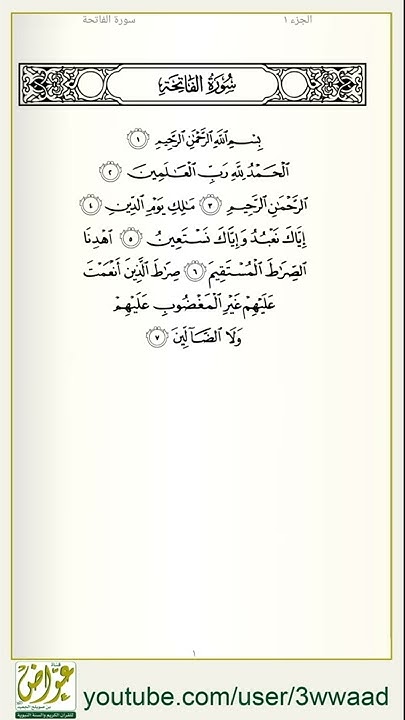 الجزء ١
سورة الفاتحة
سُورَةُ الفَاتِحَةِ
بِسْمِ ٱللَّهِ ٱلرَّحْمَٰنِ ٱلرَّحِيمِ ١
ٱلْحَمْدُ لِلَّهِ رَبِّ ٱلْعَٰلَمِينَ ٢
ٱلرَّحْمَٰنِ ٱلرَّحِيمِ ٣ مَٰلِكِ يَوْمِ ٱلدِّينِ ٤
إِيَّاكَ نَعْبُدُ وَإِيَّاكَ نَسْتَعِينُ ٥ ٱهْدِنَا
ٱلصِّرَٰطَ ٱلْمُسْتَقِيمَ ٦ صِرَٰطَ ٱلَّذِينَ أَنْعَمْتَ
عَلَيْهِمْ غَيْرِ ٱلْمَغْضُوبِ عَلَيْهِمْ
وَلَا ٱلضَّآلِّينَ ٧
١
قناة
عوّاض
للقرآن الكريم والسنة النبوية
youtube.com/user/3wwaad